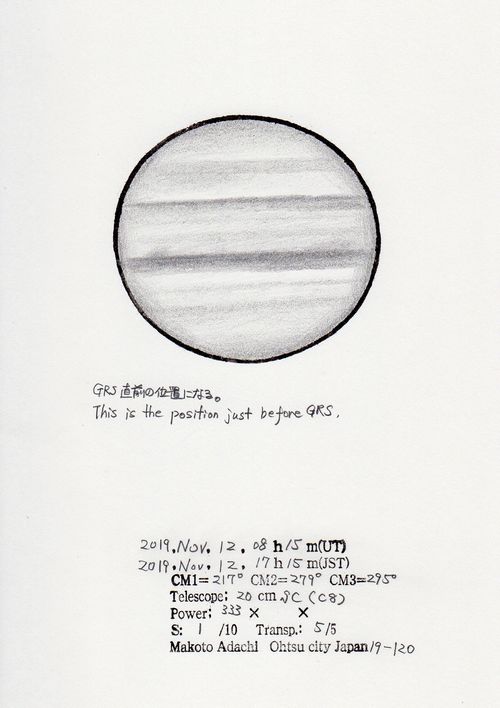 GRS 直前の位置になる。
This is the position just before GRS.
2019.Nov. 12. 08 h 15 m(UT)
2019.Nov. 12. 17 h 15 m(JST)
CM1= 217° CM2= 279° CM3= 295°
Telescope: 20 cm SC (C8)
Power: 333 × ×
S: 1 /10 Transp.: 5/5
Makoto Adachi Ohtsu city Japan 19-120